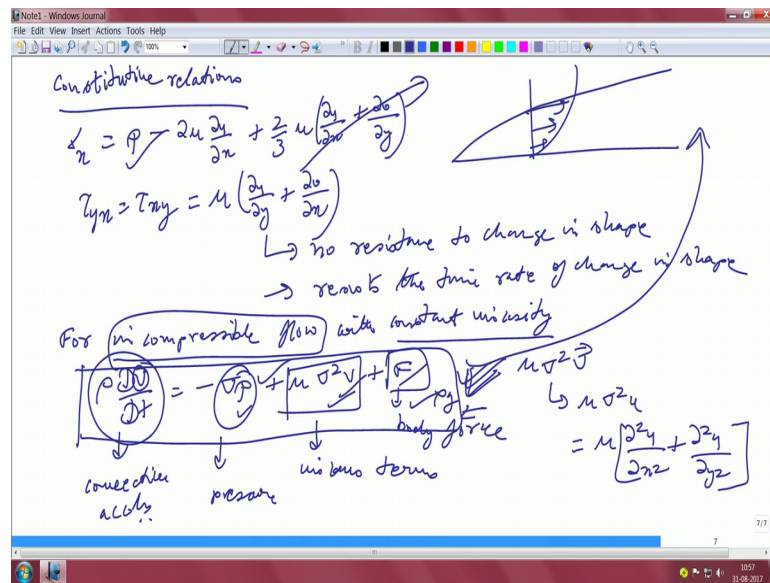 Note1 - Windows Journal
File Edit View Insert Actions Tools Help
100%
Constitutive relations
σx = P - 2μ ∂u/∂x + 2/3 μ (∂u/∂x + ∂v/∂y)
τyx = τxy = μ (∂u/∂y + ∂v/∂x)
↳ no resistance to change in shape
→ resists the time rate of change in shape
For incompressible flow with constant viscosity
ρ DV/Dt = - ∇P + μ ∇²V + F
μ ∇² V
↳ μ ∇² u
= μ [∂²u/∂x² + ∂²u/∂y²]
ρg
body force
convective
accln
pressure
viscous terms
7/7
7
10:57
31-08-2017